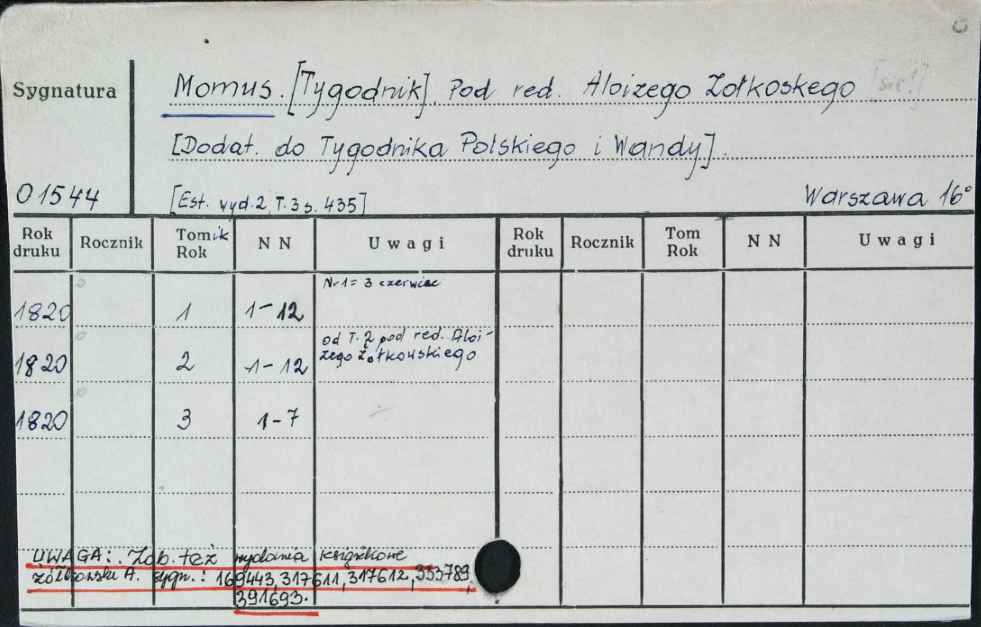 Sygnatura
Momus. [Tygodnik]. Pod red. Aloizego Żołkoskego [sic!]
[Dodat. do Tygodnika Polskiego i Wandy].
O 1544
[Est. wyd. 2, T. 3 s. 435]
Warszawa 16°
Rok druku Rocznik Tomik Rok NN Uwagi Rok druku Rocznik Tom Rok NN Uwagi
Nr 1 = 3 czerwiec
1820 1 1-12
od T. 2 pod red. Aloi-
1820 2 1-12 zego Żółkowskiego
1820 3 1-7
UWAGA: Zob. też wydania książkowe
Żółkowski A. sygn.: 169443, 317611, 317612, 333789,
391693.